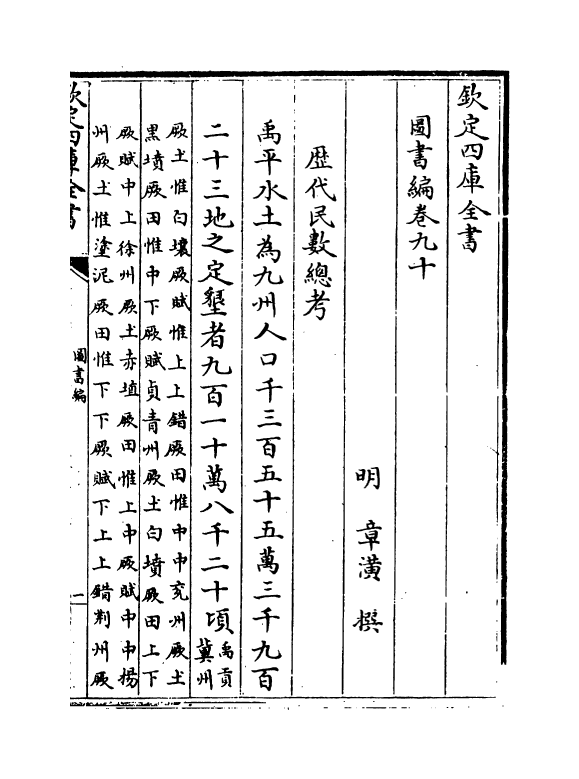 欽定四庫全書
圖書編卷九十
明 章潢 撰
歴代民數總考
禹平水土為九州人口千三百五十五萬三千九百
二十三地之定墾者九百一十萬八千二十頃禹貢冀州
厥土惟白壤厥賦惟上上錯厥田惟中中兖州厥土
黒墳厥田惟中下厥賦貞青州厥土白墳厥田上下
厥賦中上徐州厥土赤埴厥田惟上中厥賦中中揚
州厥土惟塗泥厥田惟下下厥賦下上上錯荆州厥
欽定四庫全書
圖書編
一